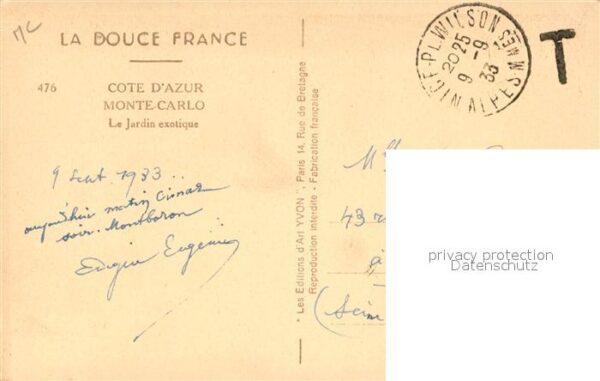 MC
LA DOUCE FRANCE
476
COTE D'AZUR
MONTE-CARLO
Le Jardin exotique
9 Sept 1933..
aujourd'hui matin Cimiez
soir. Montboron
Eugénie
"Les Editions d'Art YVON", Paris 14, Rue de Bretagne
Reproduction interdite - Fabrication française
NICE-PL. WILSON
ALPES MMES
20 25
9 -9
33
T
43
à
(Seine
privacy protection
Datenschutz